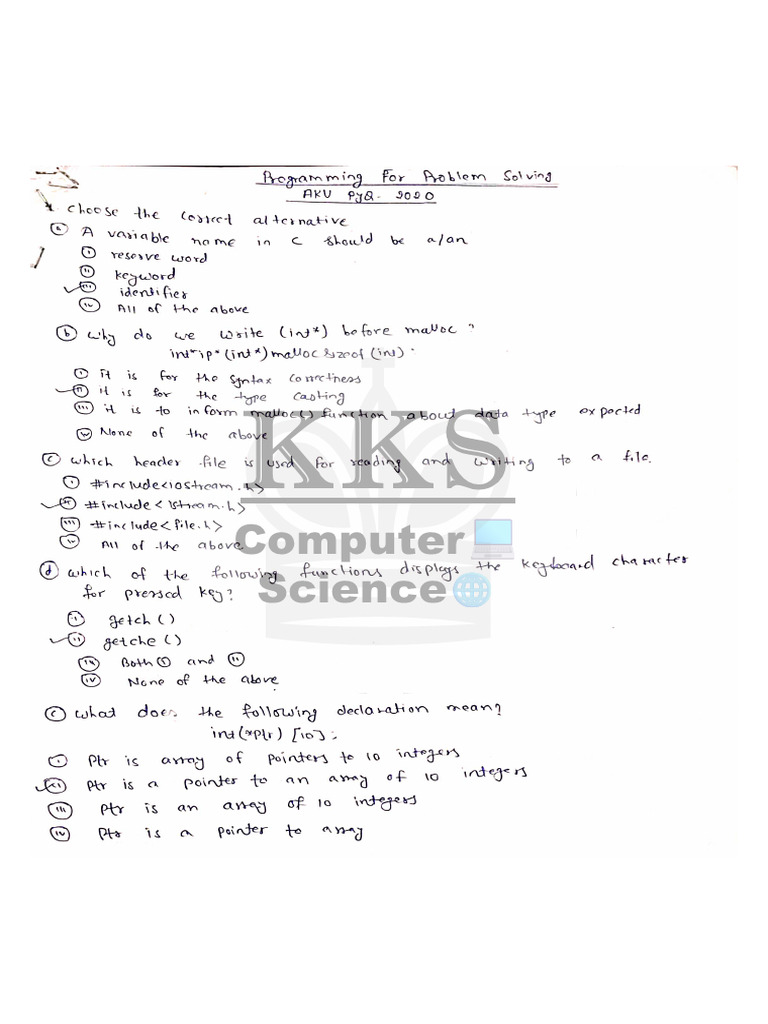 Programming For Problem Solving
AKU PYQ- 2020
choose the correct alternative
a A variable name in C should be a/an
i reserve word
ii keyword
iii identifier
iv All of the above
b Why do we write (int*) before malloc ?
int*ip*(int*)malloc sizeof(int).
i it is for the syntax correctness
ii it is for the type casting
iii it is to inform malloc() function about data type expected
iv None of the above
KKS
c which header file is used for reading and writing to a file.
i #include<iostream.h>
ii #include<istream.h>
iii #include<file.h>
iv All of the above
Computer
d which of the following functions displays the keyboard character
for pressed key?
Science
i getch ()
ii getche ()
iii Both i and ii
iv None of the above
e what does the following declaration mean?
int(*Ptr) [10];
i Ptr is array of pointers to 10 integers
ii Ptr is a pointer to an array of 10 integers
iii ptr is an array of 10 integers
iv Ptr is a pointer to array